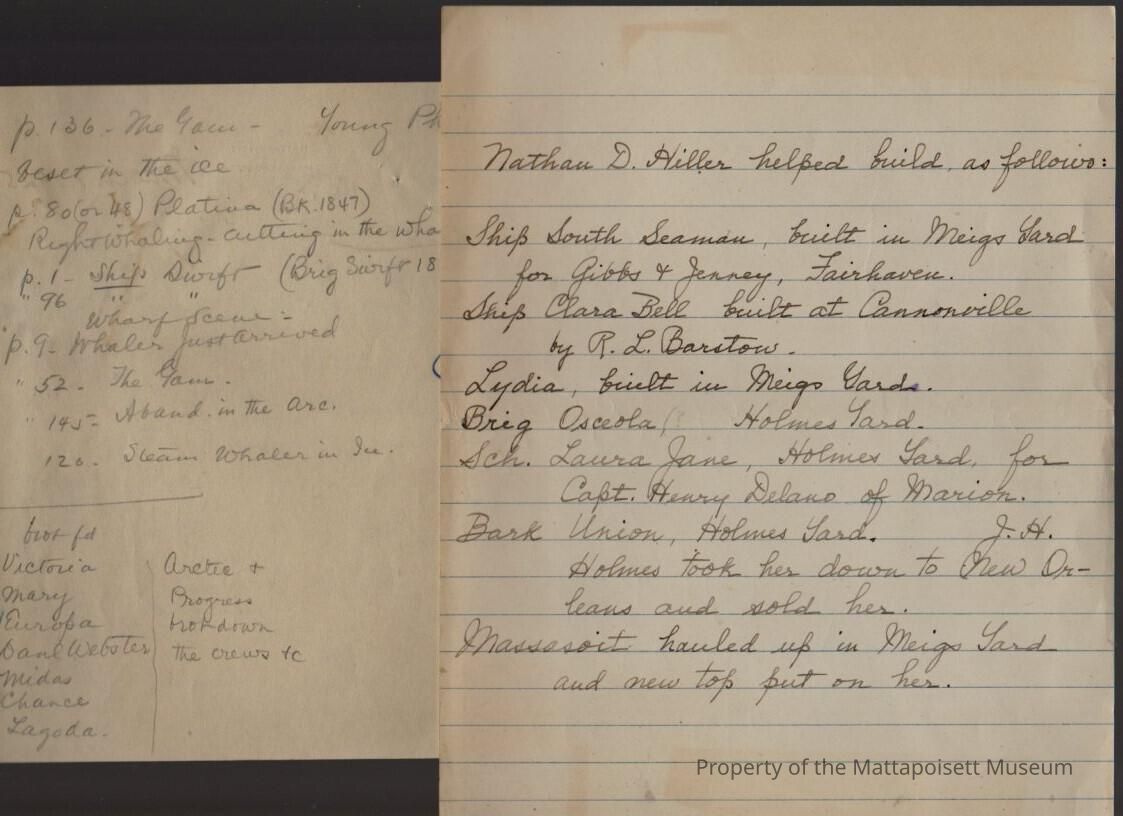 p. 136 - The Gam - Young Ph
beset in the ice
p. 80 (or 48) Platina (BK. 1847)
Right Whaling - cutting in the wha
p. 1 - Ship Swift (Brig Swift 18
" 96 " "
Wharf Scene -
p. 9 - Whaler just arrived
" 52 - The Gam.
" 145 - Aband. in the Arc.
120. Steam Whaler in Ice.
brot fd
Victoria
Mary
Europa
Danl Webster
Midas
Chance
Lagoda.
Arctic +
Progress
brot down
the crews &c
Nathan D. Hiller helped build, as follows:
Ship South Seaman, built in Meigs Yard
for Gibbs & Jenney, Fairhaven.
Ship Clara Bell built at Cannonville
by R. L. Barstow.
Lydia, built in Meigs Yard.
Brig Osceola, Holmes Yard.
Sch. Laura Jane, Holmes Yard, for
Capt. Henry Delano of Marion.
Bark Union, Holmes Yard. J. H.
Holmes took her down to New Or-
leans and sold her.
Massasoit hauled up in Meigs Yard
and new top put on her.
Property of the Mattapoisett Museum